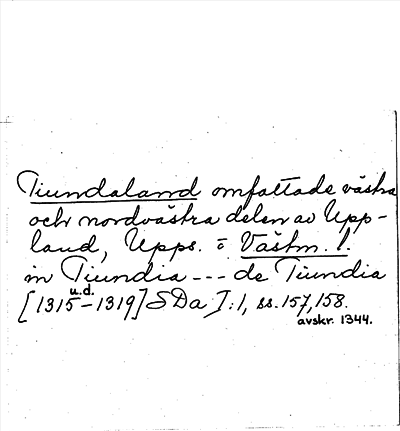 Tiundaland omfattade västra
och nordvästra delen av Upp-
land, Upps. o Västm. l.
in Tiundia --- de Tiundia
[1315 u.d. - 1319] SDa I:1, ss. 157, 158.
avskr. 1344.